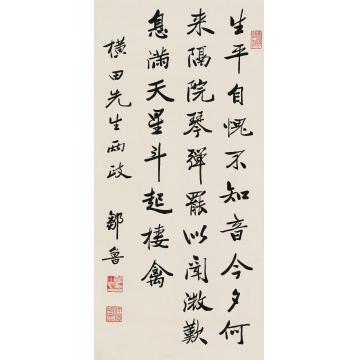 生平自愧不知音今夕何
来隔院琴弹罢似闻微叹
息满天星斗起栖禽
横田先生两政
邹鲁